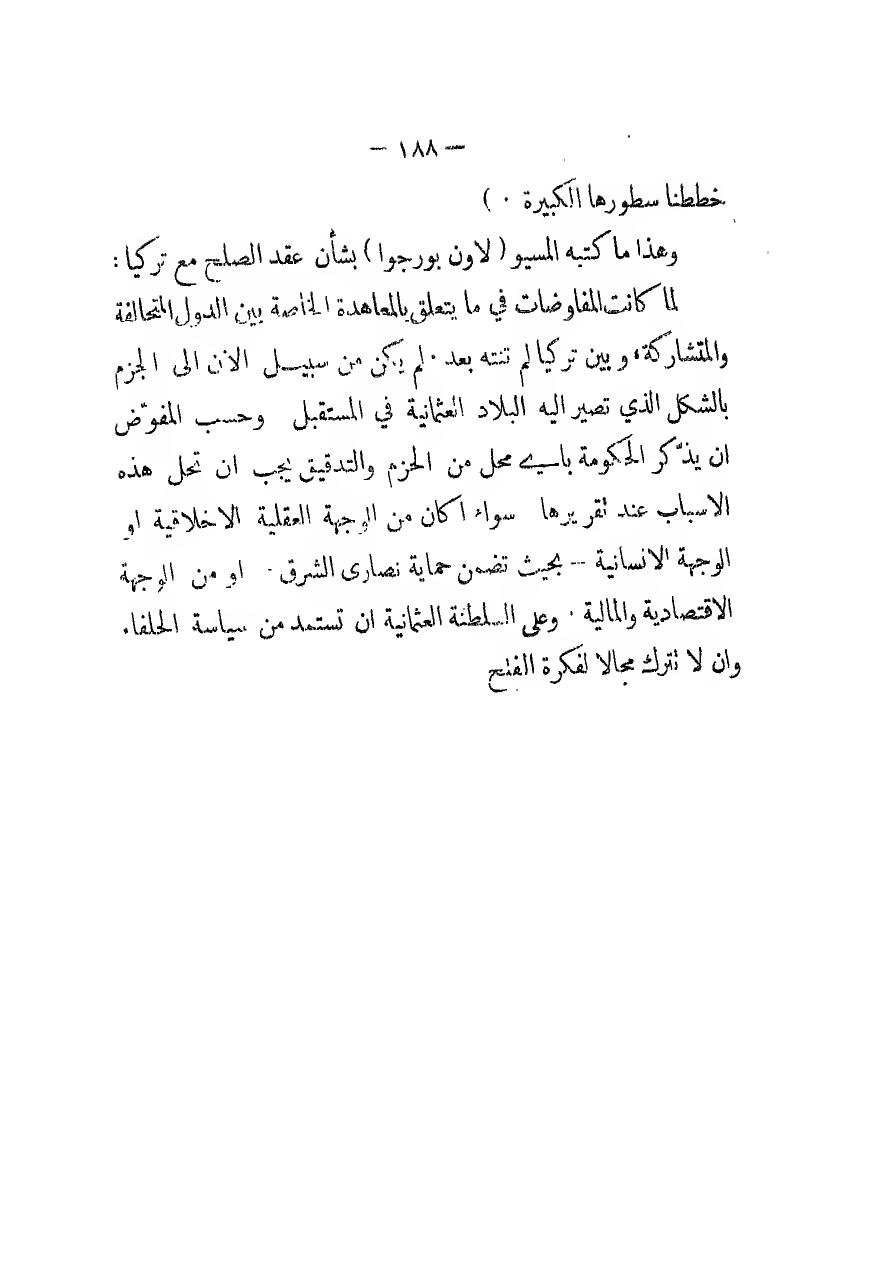 — ١٨٨ —
خططنا سطورها الكبيرة ٠ )
وهذا ما كتبه المسيو ( لاون بورجوا ) بشأن عقد الصلح مع تركيا :
لما كانت المفاوضات في ما يتعلق بالمعاهدة الخاصة بين الدول المتحالفة
والمتشاركة، وبين تركيا لم تنته بعد ٠ لم يكن من سبيل الآن الى الجزم
بالشكل الذي تصير اليه البلاد العثمانية في المستقبل وحسب المفوّض
ان يذكّر الحكومة باي محل من الحزم والتدقيق يجب ان تحل هذه
الاسباب عند تقريرها سواء اكان من الوجهة العقلية الاخلاقية او
الوجهة الانسانية — بحيث تضمن حماية نصارى الشرق ٠ او من الوجهة
الاقتصادية والمالية ٠ وعلى السلطنة العثمانية ان تستمد من سياسة الحلفاء
وان لا تترك مجالا لفكرة الفتح